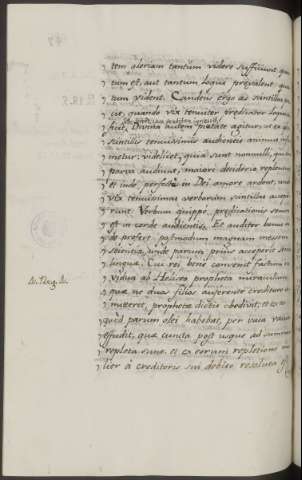 tem gloriam tantum videre sufficiunt, quan
tum est, aut tantum loqui prevalent quan
tum vident. Candens ergo æs scintillas ja
cit, quando vix tenuiter predicator loqui suf
ficit. Divina autem pietate agitur, ut ex
scintillis tenuissimis audientis animus infla
metur: videlicet, quia sunt nonnulli, qui
parva audiunt, maiore desiderio replentur
et inde perfectè in Dei amore ardent, unde
vix tenuissimas verborum scintillas accepe
runt. Verbum quippe predicationis semen
est in corde audientis. Et auditor bonus
de profert postmodum magnam messem
scientiæ, unde parum prius acceperat
linguæ. Cui rei bene convenit factum
vidua ab Heliseo propheta miraculum
quæ ne duos filios auferente creditore a
mitteret, prophetæ dictis obediens, et ex eo
quod parum olei habebat, per vasa vacua
effudit, quæ cuncta post usque ad summum
repleta sunt, et ex eorum repletione mu
lier à creditoris sui debito resoluta est